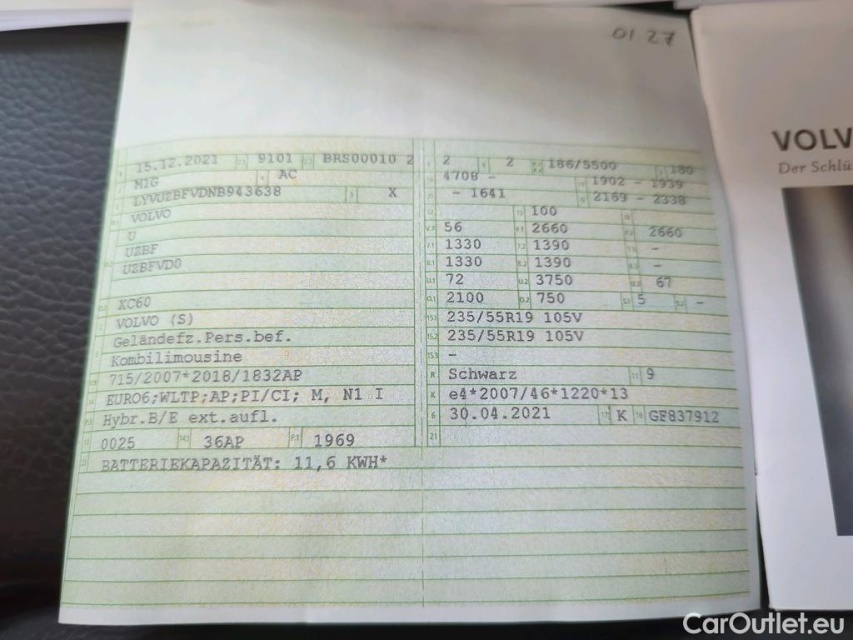 01 27
15.12.2021 9101 BRS00010 2
M1G AC
LYVUZBFVDNB943638 X
VOLVO
U
UZBF
UZBFVD0
XC60
VOLVO (S)
Geländefz.Pers.bef.
Kombilimousine
715/2007*2018/1832AP
EURO6;WLTP;AP;PI/CI; M, N1 I
Hybr.B/E ext.aufl.
0025 36AP 1969
BATTERIEKAPAZITÄT: 11,6 KWH*
2 2 186/5500 180
4708 - 1902 - 1939
- 1641 2169 - 2338
100
56 2660 2660
1330 1390 -
1330 1390 -
72 3750 67
2100 750 5 -
235/55R19 105V
235/55R19 105V
-
Schwarz 9
e4*2007/46*1220*13
30.04.2021 K GF837912
21
VOLV
Der Schlü
CarOutlet.eu